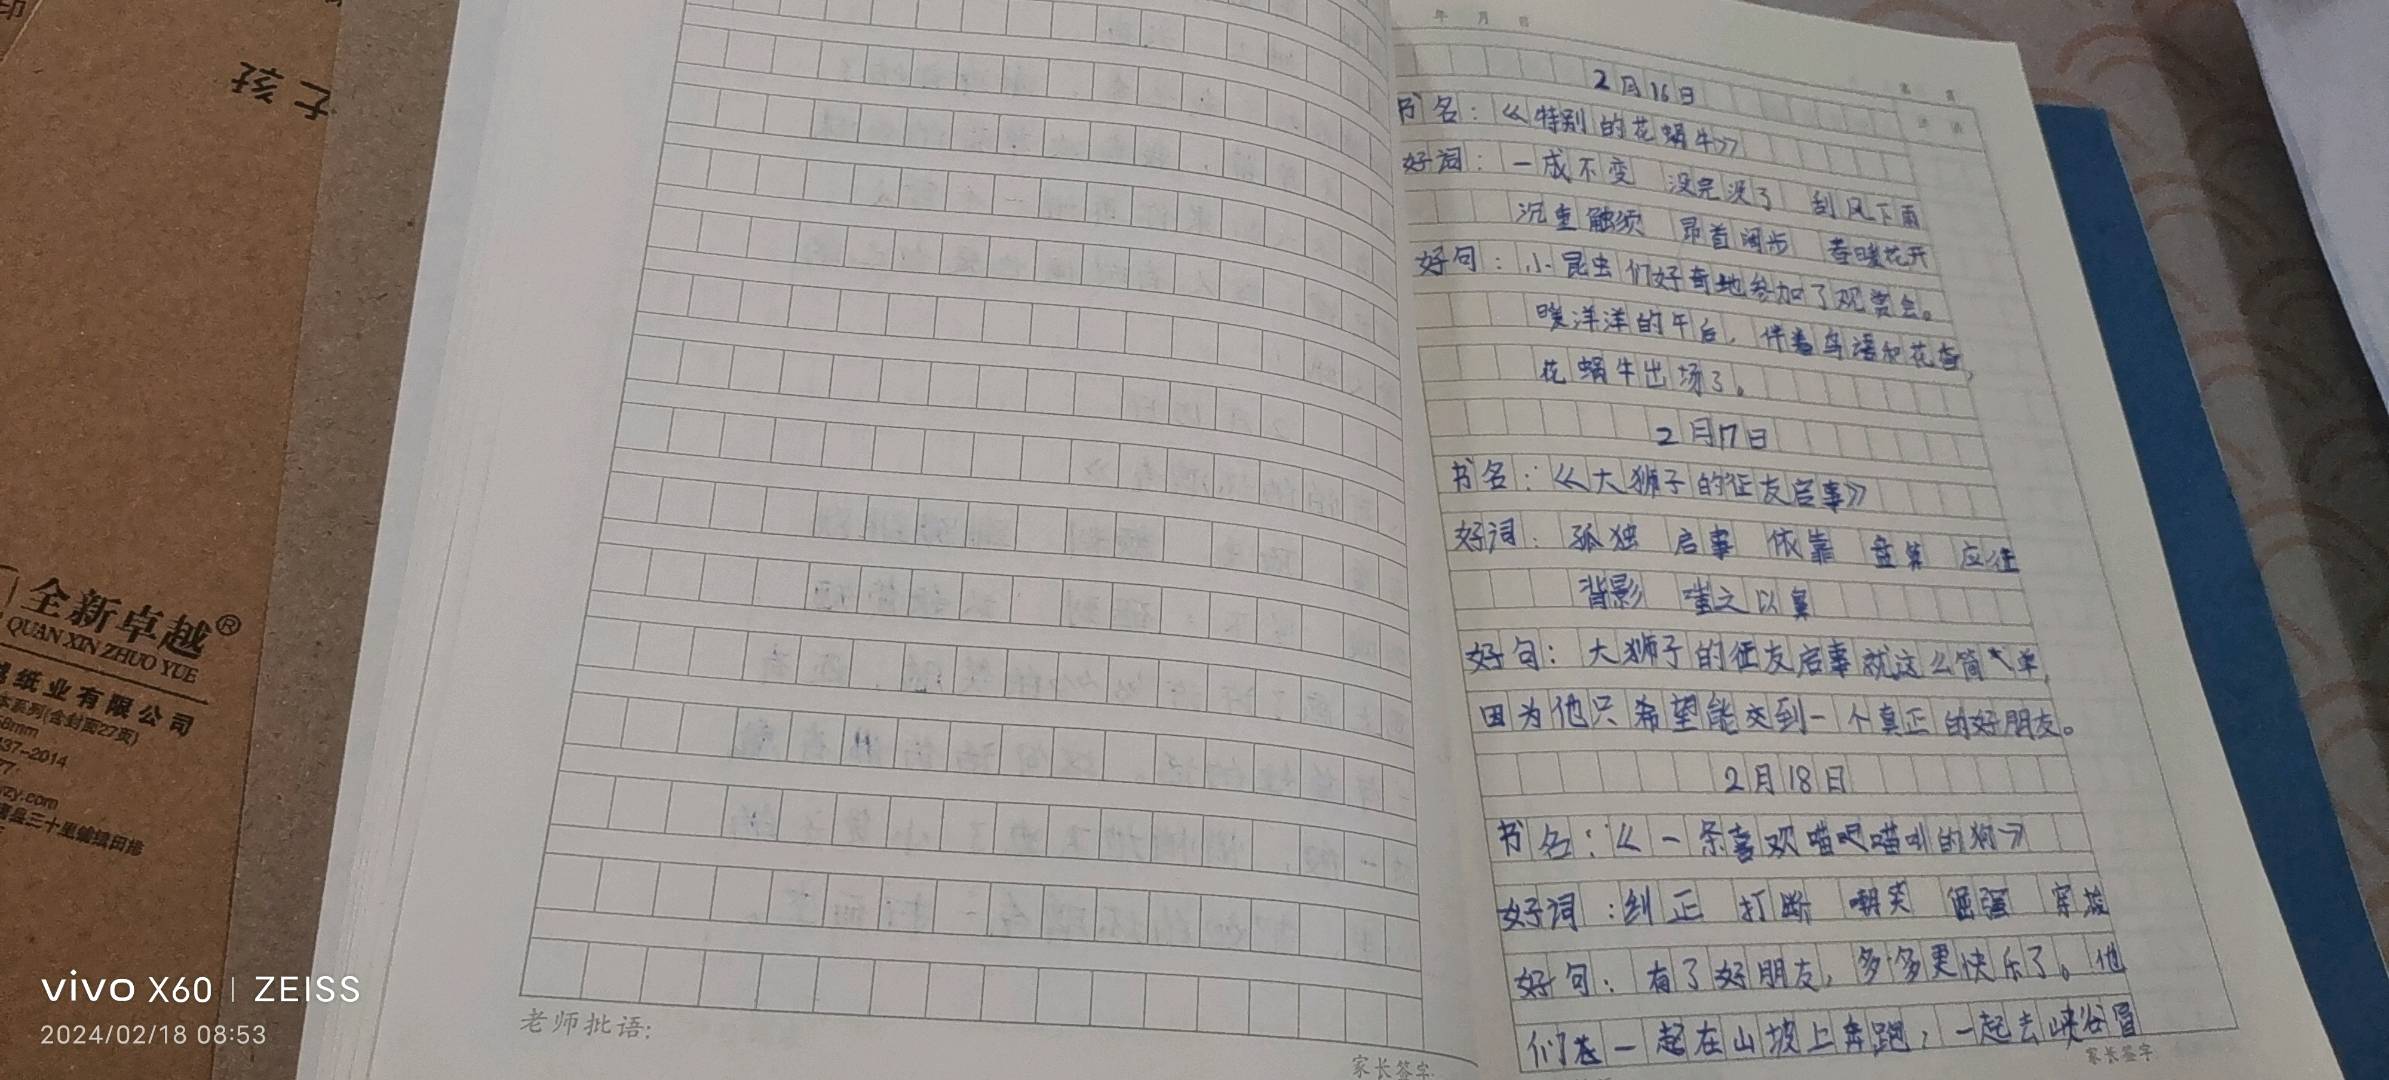 全新卓越®
QUAN XIN ZHUO YUE
纸业有限公司
本系列(含封面27页)
37-2014
vivo X60 | ZEISS
2024/02/18 08:53
老师批语:
家长签字
年 月 日
2月16日
书名:《特别的花蜗牛》
好词:一成不变 没完没了 刮风下雨
沉重触须 昂首阔步 春暖花开
好句:小昆虫们好奇地参加了观赏会。
暖洋洋的午后,伴着鸟语和花香,
花蜗牛出场了。
2月17日
书名:《大狮子的征友启事》
好词:孤独 启事 依靠 盘算 应征
背影 嗤之以鼻
好句:大狮子的征友启事就这么简单,
因为他只希望能交到一个真正的好朋友。
2月18日
书名:《一条喜欢喵喵叫的狗》
好词:纠正 打断 嘲笑 倔强 穿梭
好句:有了好朋友,多多更快乐了。他
们一起在山坡上奔跑,一起去峡谷冒
家长签字